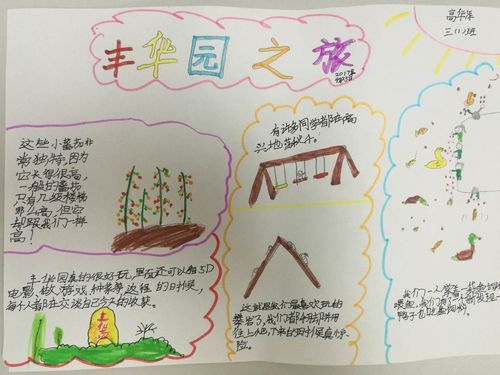 丰华园之旅
2017年
高华年
三(1)班
这些小番茄非
常独特,因为
它长得很高,
一般甘番茄
只有几级楼梯
那么高,但它
却跟我们一样
高!
有许多同学都在高
兴地荡秋千。
丰华园真的很好玩,里面还可以看5D
电影、做游戏、种菜等,这样的日时候,
每个人都在交谈自己今天的收获。
丰华
这就是我们最喜欢玩的
攀岩了,我们都
往上爬,下来的时候真惊
险。
我们一人拿着一袋鱼饲料
喂鱼,我们有一个新发现
鸭子